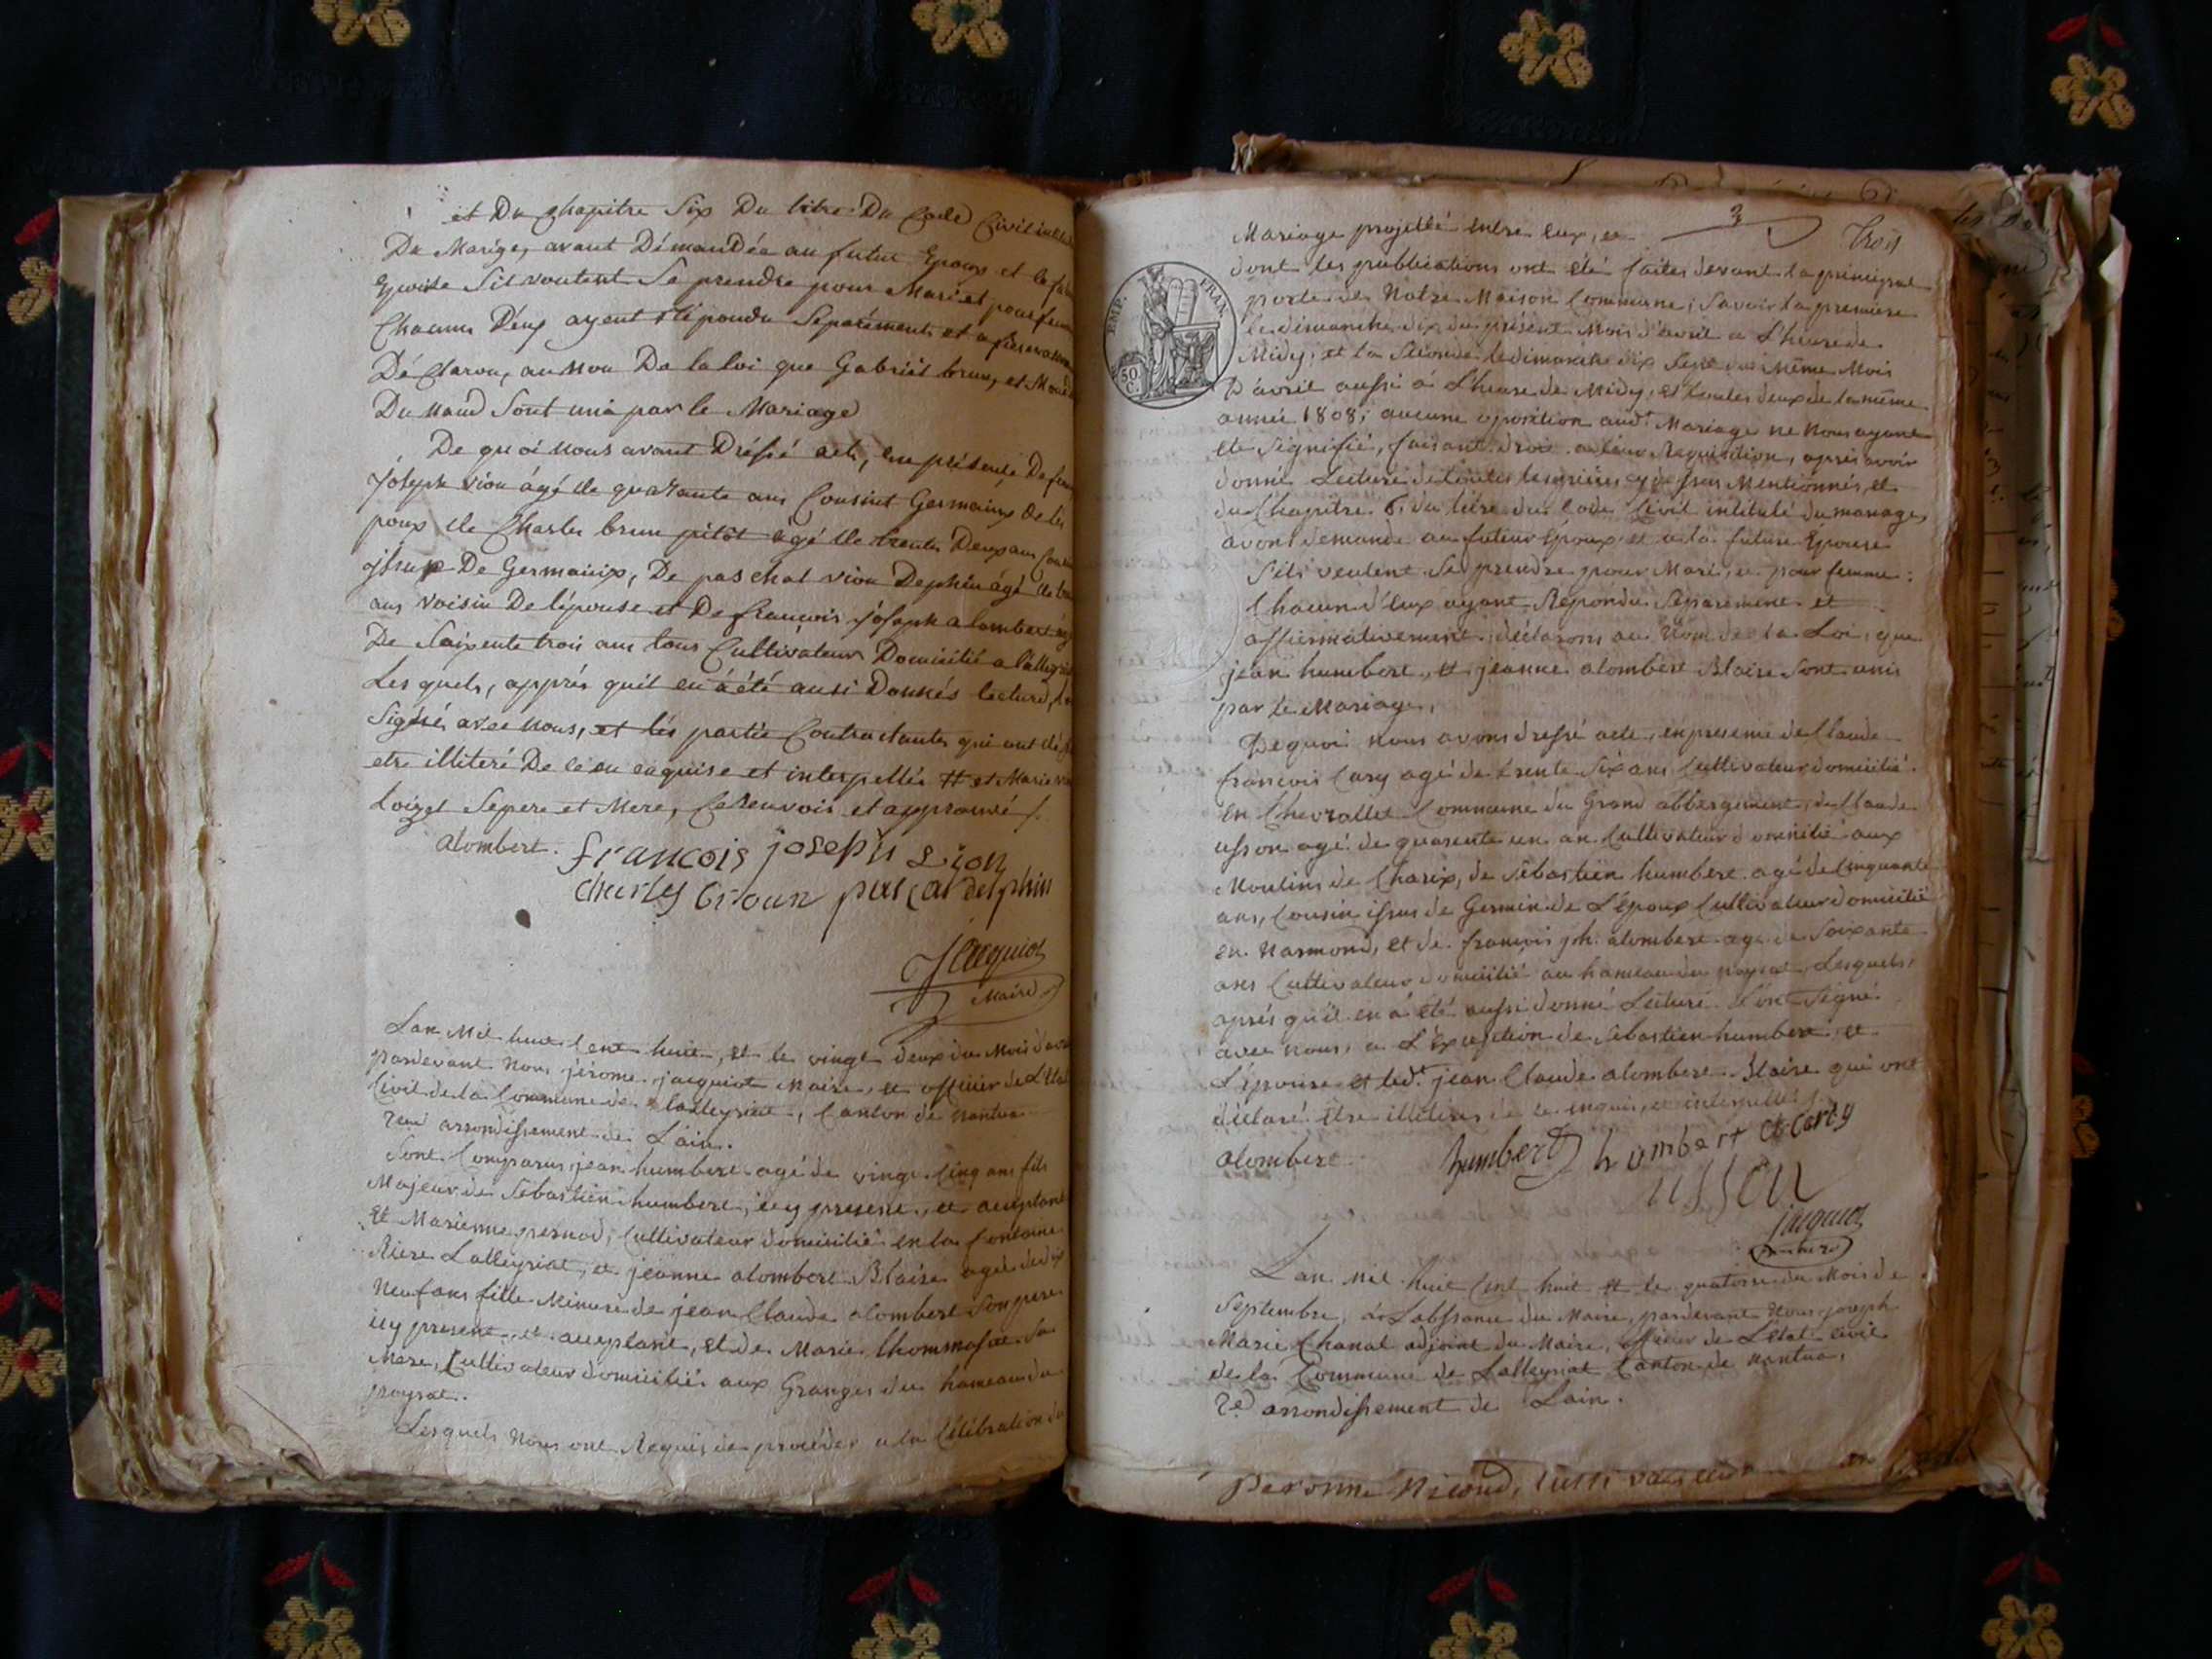 et Du Chapitre Six Du titre Du Code Civil
Du Marige, avant Démandéa au futur Epoux et la
Epouse Sil voutent Se prendre pour Mari et pour
Chacuns Déux ayent Réponda Séparéments et
Déclarou, au Nou De la loi que Gabriel brun, et
Du Naud Sont unis par le Mariage
De quoi nous avant Dréssé acte, en présence De
Joseph Viou âgé de quarante ans Cousint Germainx de
poux de Charles brun pitôt agé de trente Deux ans
De Germainx, De paschal viou Dephin âgé de
ans voisin De l'épouse et De francois Joseph alombert
De Soixente trois ans tous Cultivateur Domicilié a
Les quels, apprés quil en á été ausi Donnés lecture,
Signé avec Nous, et lés partie Contractantes qui ont
etre illiteré De ce en enquise et interpellés # et Marie
Loizet Se pere et Mere, Ce Renvois et approuvé /.
alombert. francois joseph
Charles broun pascal delphin
Jacquiot
Maire
Lan Mil huit Cent huit, et le vingt deux du Mois
pardevant Nous jérome jacquiot Maire, et officier de
Civil de la Commune de lalleyriat, Canton de Nantua
arrondissement de Lain.
Sont Comparus jean humbert agé de vingt Cinq ans fils
Majeur de Sébastien humbert, icy present, et aceptant
Et Marienne pernod, Cultivateur domicilié en la fontaine
Riere Lalleyriat, et jeanne alombert Blaise ageé de dix
Neuf ans fille Mineure de jean Claude alombert Son pere
icy present, et aceptant, et de Marie thommasset Sa
Mere, Cultivateur domicilié aux Granges du hameau du
poyzat.
Lesquels Nous ont Requis de procéder a la Célébration du
3
Trois
Mariage projetté entre eux, et
dont les publications ont été faites devant la principal
porte de Notre Maison Commune; Savoir la premiere
le dimanche dix du présent Mois d'avril a L'heure de
Midy, et la Seconde le dimanche dix Sept du Même Mois
D'avril aussi á L'heure de Midy, et toutes deux de la même
année 1808; aucune oposition aud.t Mariage ne Nous ayant
eté Signifié, faisant droit a leur Requisition, après avoir
donné Lecture de toutes les pièces cy dessus Mentionnés, et
du Chapitre 6, du titre du Code Civil intitulé du mariage,
avons demandé au futeur Epoux et a la future Epouse
S'ils veulent Se prendre pour Mari, et pour femme:
Chacun d'eux ayant Répondu Séparement et
affirmativement, déclarons au Nom de la Loi, que
jean humbert, et jeanne alombert Blaise Sont unis
par le Mariage,
De quoi nous avons dressé acte, en presence de Claude
francois Cary agé de trente Six ans Cultivateur domicilié
en Chevrallet Commune du Grand abbergement, de Claude
usson agé de quarente un an Cultivateur domicilié aux
Moulins de Charix, de Sébastien humbert agé de Cinquante
ans, Cousin issus de Germin de L'époux Cultivateur domicilié
en Narmond, et de francois jph. alombert agé de Soixante
ans Cultivateur domicilié au hameau du poyzat, Lesquels,
après qu'il en á été aussi donné Lecture L'ont Signé
avec nous, a L'Exception de Sébastien humbert et
L'épouse et led.t jean Claude alombert Blaise qui ont
déclaré être illitéres de ce enquis, et interpellés /.
alombert humbert humbert Cl Carry
usson
jacquiot
Lan mil huit Cent huit et le quatorze du Mois de
Septembre, á L'abssance du Maire, pardevant Nous joseph
Marie Chanal adjoint du Maire, officier de L'état Civil
de la Commune de Lalleyriat Canton de Nantua,
2e arrondissement de Lain.
EMP. FRAN.
50 C.